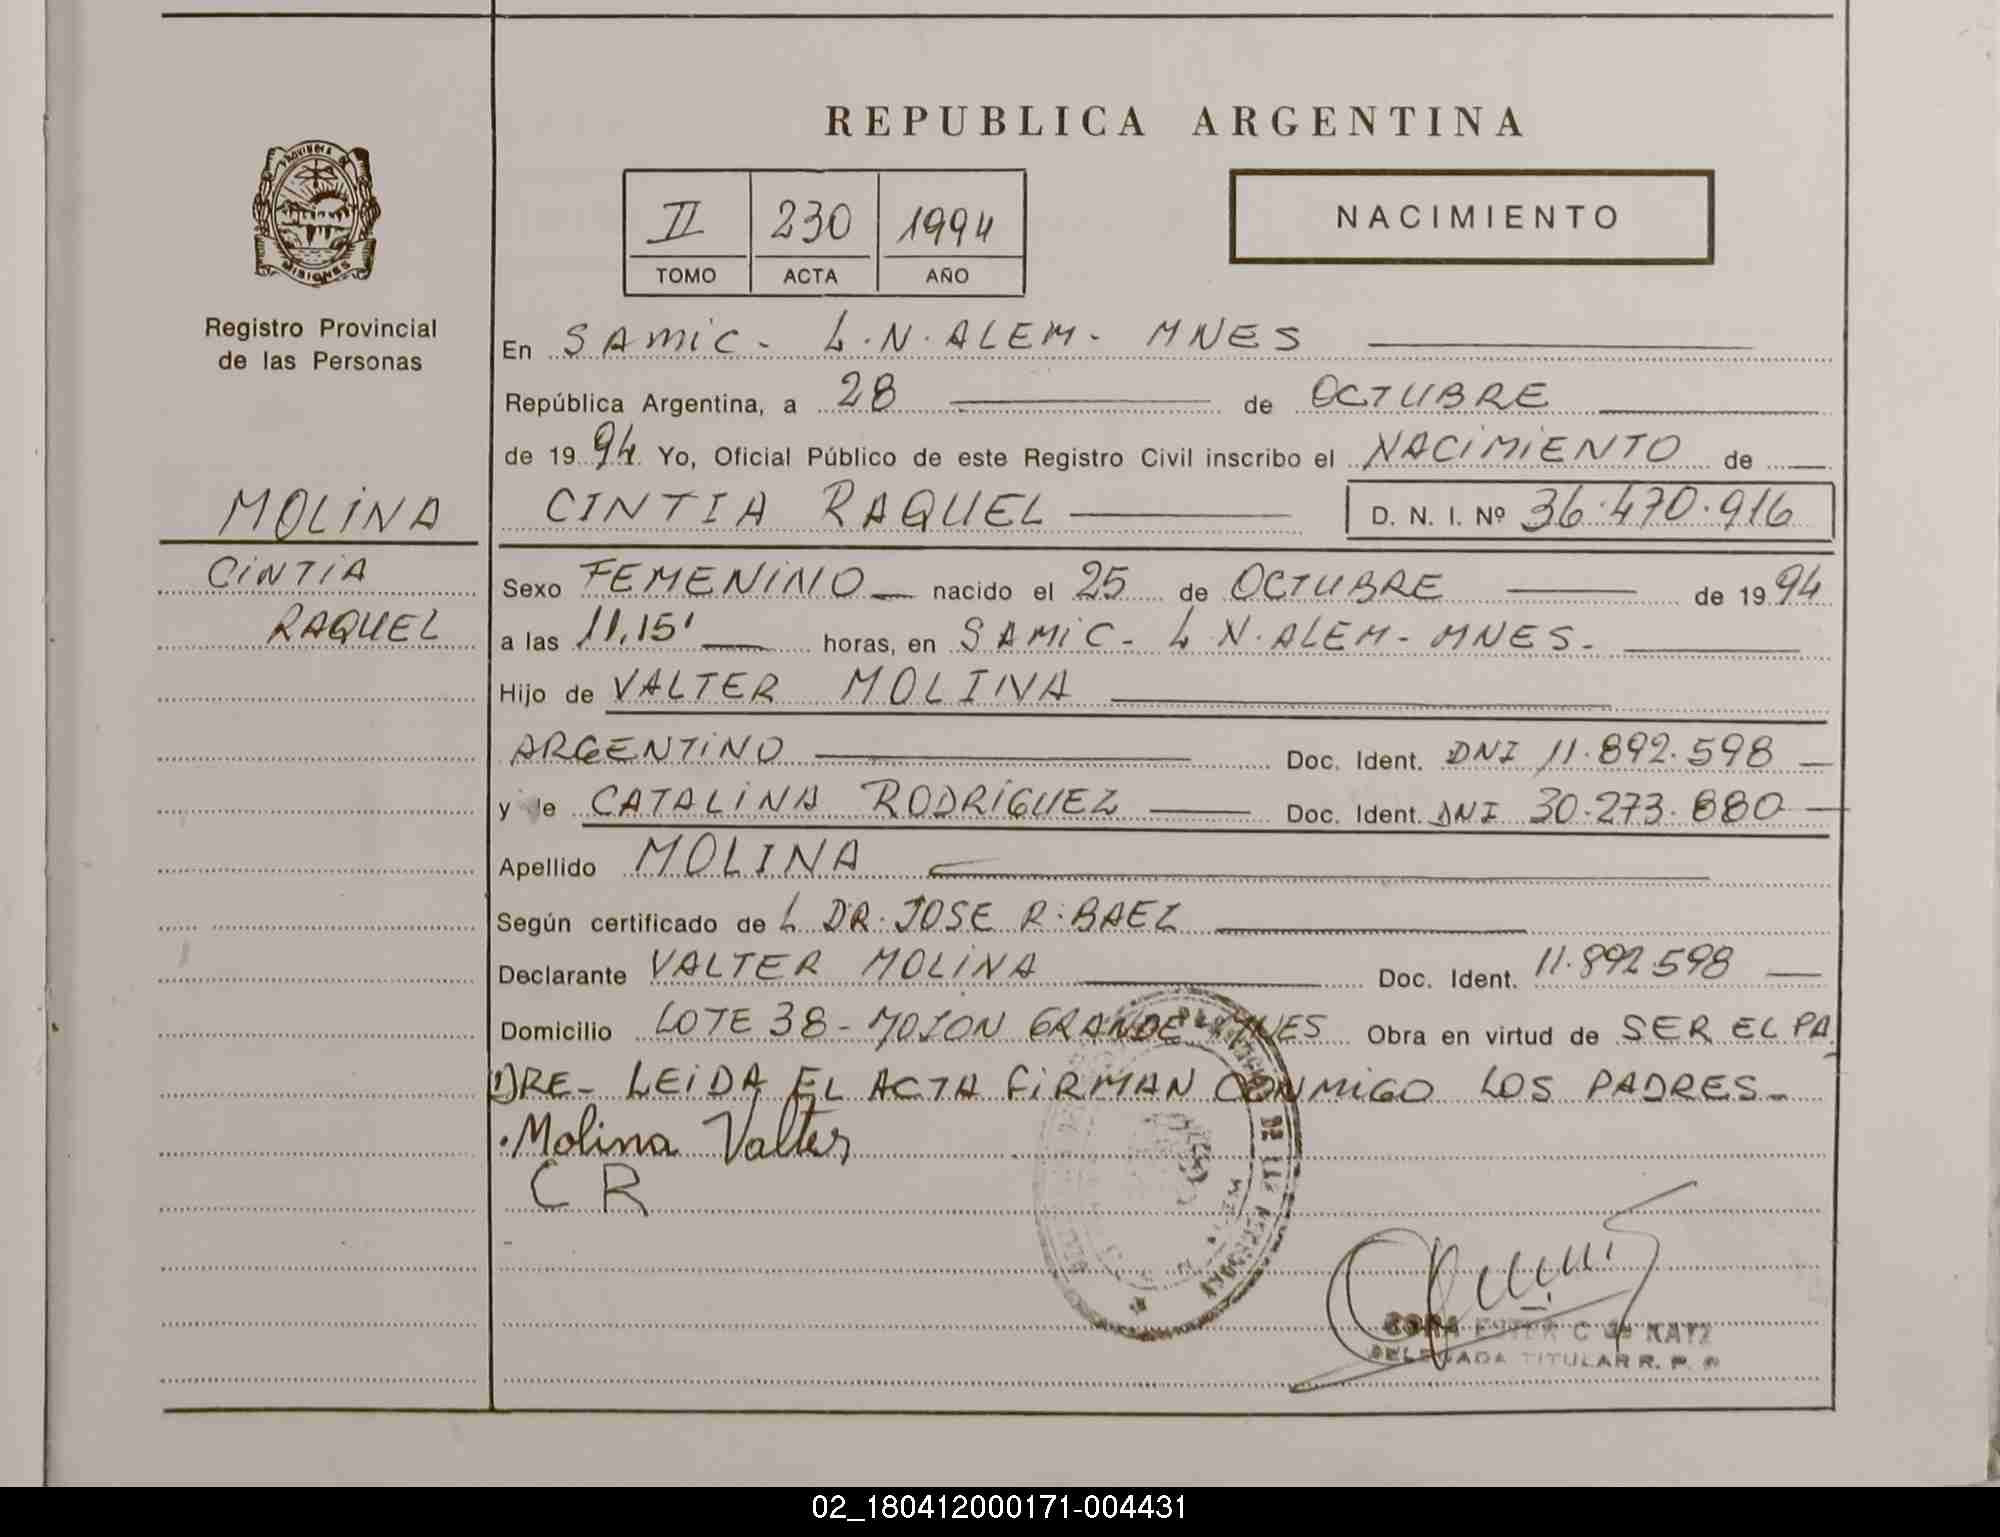 REPUBLICA ARGENTINA
PROVINCIA DE
MISIONES
Registro Provincial
de las Personas
II 230 1994
TOMO ACTA AÑO
NACIMIENTO
En SAMIC - L.N. ALEM - MNES
República Argentina, a 28 de OCTUBRE
de 1994 Yo, Oficial Público de este Registro Civil inscribo el NACIMIENTO de
MOLINA
CINTIA RAQUEL D. N. I. Nº 36.470.916
CINTIA
RAQUEL
Sexo FEMENINO nacido el 25 de OCTUBRE de 1994
a las 11,15' horas, en SAMIC - L N. ALEM - MNES -
Hijo de VALTER MOLINA
ARGENTINO Doc. Ident. DNI 11.892.598
y de CATALINA RODRIGUEZ Doc. Ident. DNI 30.273.880
Apellido MOLINA
Según certificado de L DR. JOSE R. BAEZ
Declarante VALTER MOLINA Doc. Ident. 11.892.598
Domicilio LOTE 38 - MOJON GRANDE MNES Obra en virtud de SER EL PA
DRE - LEIDA EL ACTA FIRMAN CONMIGO LOS PADRES -
Molina Valter
C R
C de KATZ
DELEGADA TITULAR R. P.
02_180412000171-004431